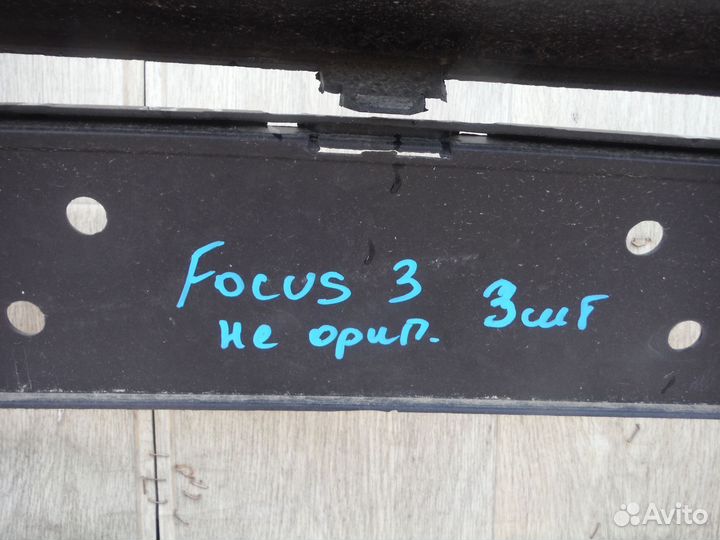 Focus 3 3шт
не ориг.
Avito